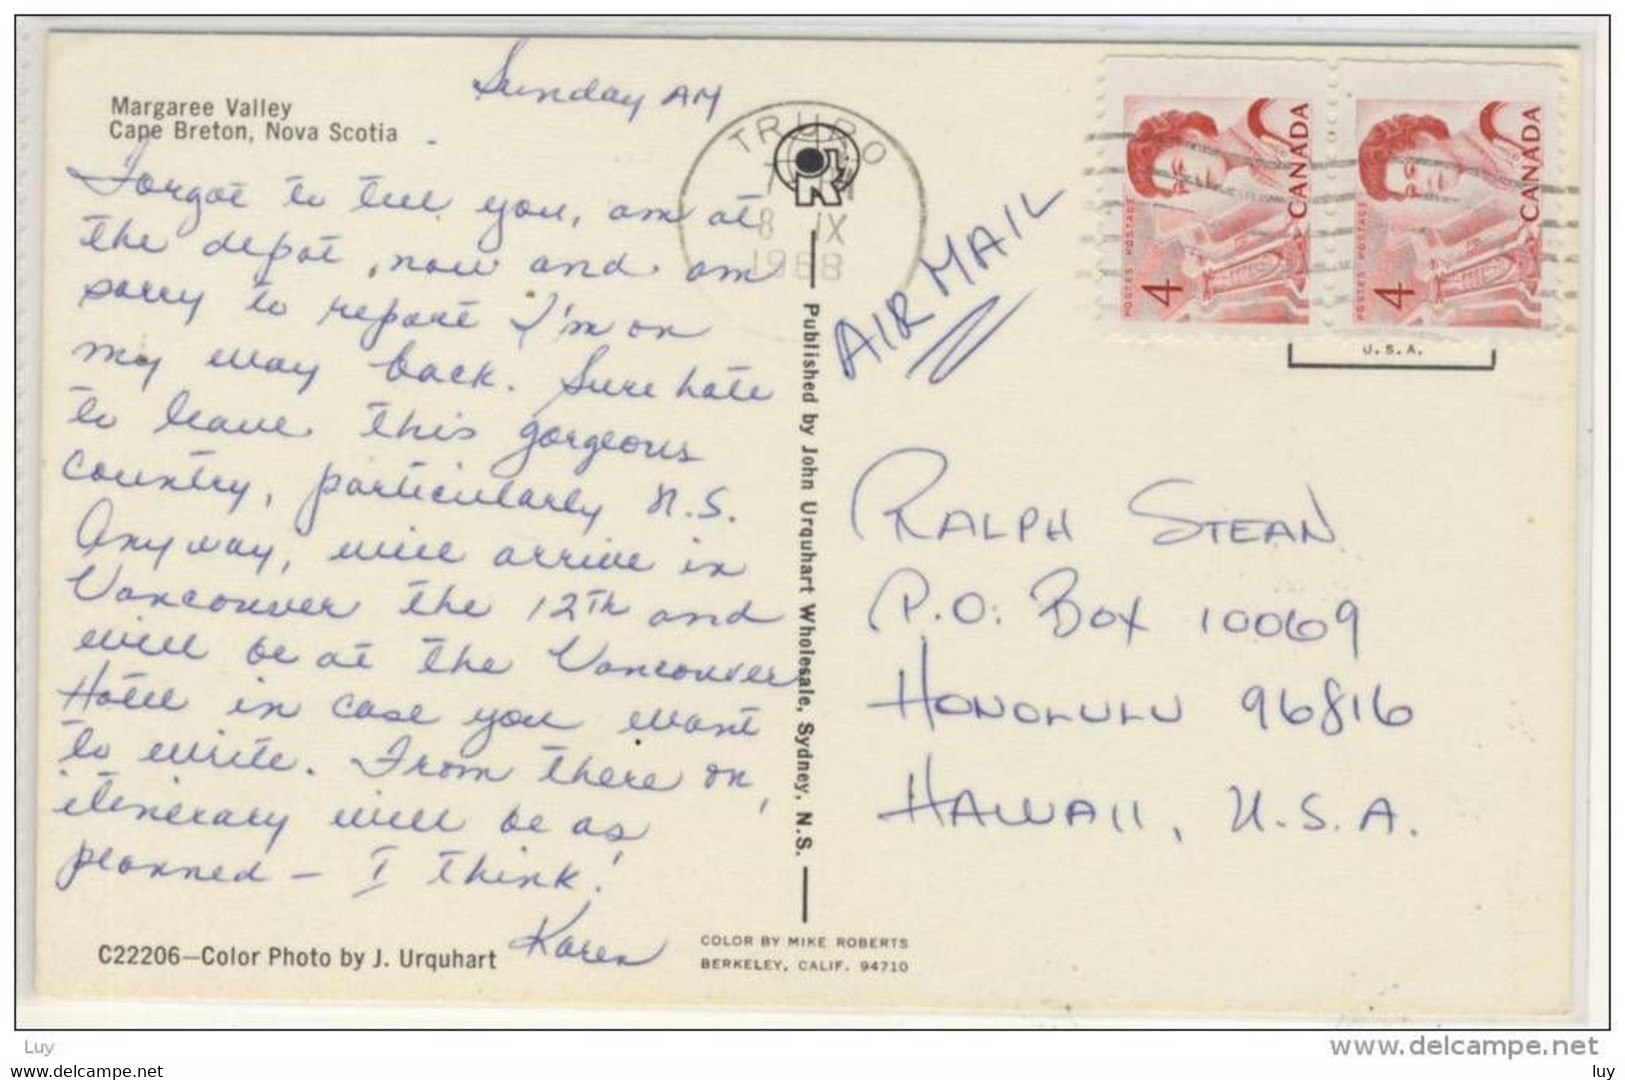 Margaree Valley
Cape Breton, Nova Scotia
Sunday AM
Forgot to tell you, am at
the depot now and am
sorry to report I'm on
my way back. Sure hate
to leave this gorgeous
country, particularly N.S.
Anyway, will arrive in
Vancouver the 12th and
will be at the Vancouver
Hotel in case you want
to write. From there on,
itinerary will be as
planned – I think!
Karen
C22206—Color Photo by J. Urquhart
TRURO
8 IX
1968
Published by John Urquhart Wholesale, Sydney, N.S.
COLOR BY MIKE ROBERTS
BERKELEY, CALIF. 94710
AIR MAIL
POSTES POSTAGE
4
CANADA
POSTES POSTAGE
4
CANADA
U.S.A.
RALPH STEAN
P.O. BOX 10069
HONOLULU 96816
HAWAII, U.S.A.
Luy
www.delcampe.net
www.delcampe.net
luy